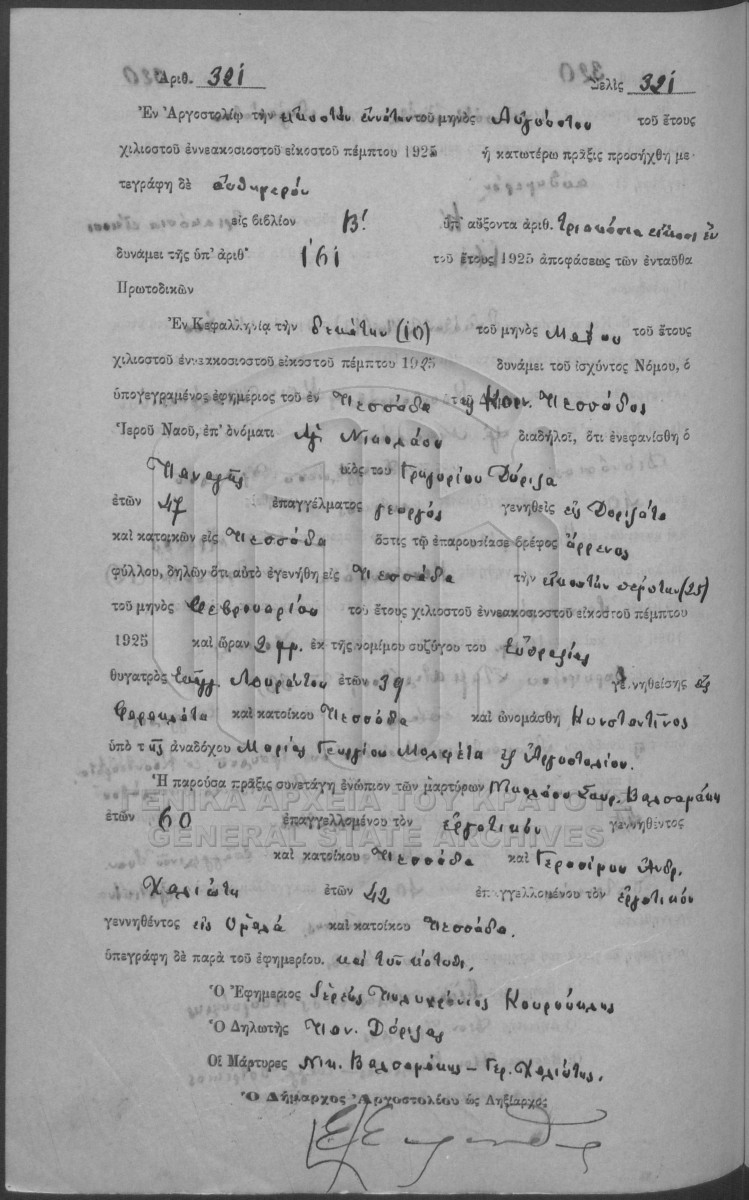 Ἀριθ. 321 Σελὶς 321
Ἐν Ἀργοστολίῳ τὴν εἰκοστὴν ἐννάτην τοῦ μηνὸς Αὐγούστου τοῦ ἔτους
χιλιοστοῦ ἐννεακοσιοστοῦ εἰκοστοῦ πέμπτου 1925 ἡ κατωτέρω πρᾶξις προσήχθη με-
τεγράφη δὲ αὐθημερόν
εἰς βιβλίον Β! ὑπ' αὔξοντα ἀριθ. τριακόσια εἴκοσι ἓν
δυνάμει τῆς ὑπ' ἀριθ' 161 τοῦ ἔτους 1925 ἀποφάσεως τῶν ἐνταῦθα
Πρωτοδικῶν
Ἐν Κεφαλληνίᾳ τὴν δεκάτην (10) τοῦ μηνὸς Μαΐου τοῦ ἔτους
χιλιοστοῦ ἐννεακοσιοστοῦ εἰκοστοῦ πέμπτου 1925 δυνάμει τοῦ ἰσχύντος Νόμου, ὁ
ὑπογεγραμένος ἐφημέριος τοῦ ἐν Πεσσάδα τῆς Κοιν. Πεσσάδος
Ἱεροῦ Ναοῦ, ἐπ' ὀνόματι Ἁγ. Νικολάου διαδηλοῖ, ὅτι ἐνεφανίσθη ὁ
Παναγῆς υἱὸς τοῦ Γρηγορίου Δόριζα
ἐτῶν 47 ἐπαγγέλματος γεωργὸς γενηθεὶς εἰς Δοριζάτα
καὶ κατοικῶν εἰς Πεσσάδα ὅστις τῷ ἐπαρουσίασε βρέφος ἄρρενος
φύλλου, δηλῶν ὅτι αὐτὸ ἐγενήθη εἰς Πεσσάδα τὴν εἰκοστὴν πέμπτην (25)
τοῦ μηνὸς Φεβρουαρίου τοῦ ἔτους χιλιοστοῦ ἐννεακοσιοστοῦ εἰκοστοῦ πέμπτου
1925 καὶ ὥραν 2 μμ. ἐκ τῆς νομίμου συζύγου του Εὐπραξίας
θυγατρὸς Εὐάγγ. Λουράντου ἐτῶν 39 γεννηθείσης εἰς
Φαρακλάτα καὶ κατοίκου Πεσσάδα καὶ ὠνομάσθη Κωνσταντῖνος
ὑπὸ τῆς ἀναδόχου Μαρίας Γεωργίου Μολφέτα ἐξ Ἀργοστολίου.
Ἡ παροῦσα πρᾶξις συνετάγη ἐνώπιον τῶν μαρτύρων Νικολάου Σαυρ. Βαλσαμάκη
ἐτῶν 60 ἐπαγγελλομένου τὸν ἐργατικόν γεννηθέντος
καὶ κατοίκου Πεσσάδα καὶ Γερασίμου Ἀνδρ.
Χαλιώτη ἐτῶν 42 ἐπαγγελλομένου τὸν ἐργατικόν
γεννηθέντος εἰς Ὁμαλά καὶ κατοίκου Πεσσάδα.
ὑπεγράφη δὲ παρὰ τοῦ ἐφημερίου. καὶ τῶν κάτωθι.
Ὁ Ἐφημεριος Ἱερεὺς Πολυχρόνιος Κουρούκλης
Ὁ Δηλωτὴς Παν. Δόριζας
Οἱ Μάρτυρες Νικ. Βαλσαμάκης – Γερ. Χαλιώτης.
Ὁ Δήμαρχος Ἀργοστολίου ὡς Ληξίαρχος
ΓΕΝΙΚΑ ΑΡΧΕΙΑ ΤΟΥ ΚΡΑΤΟΥΣ
GENERAL STATE ARCHIVES